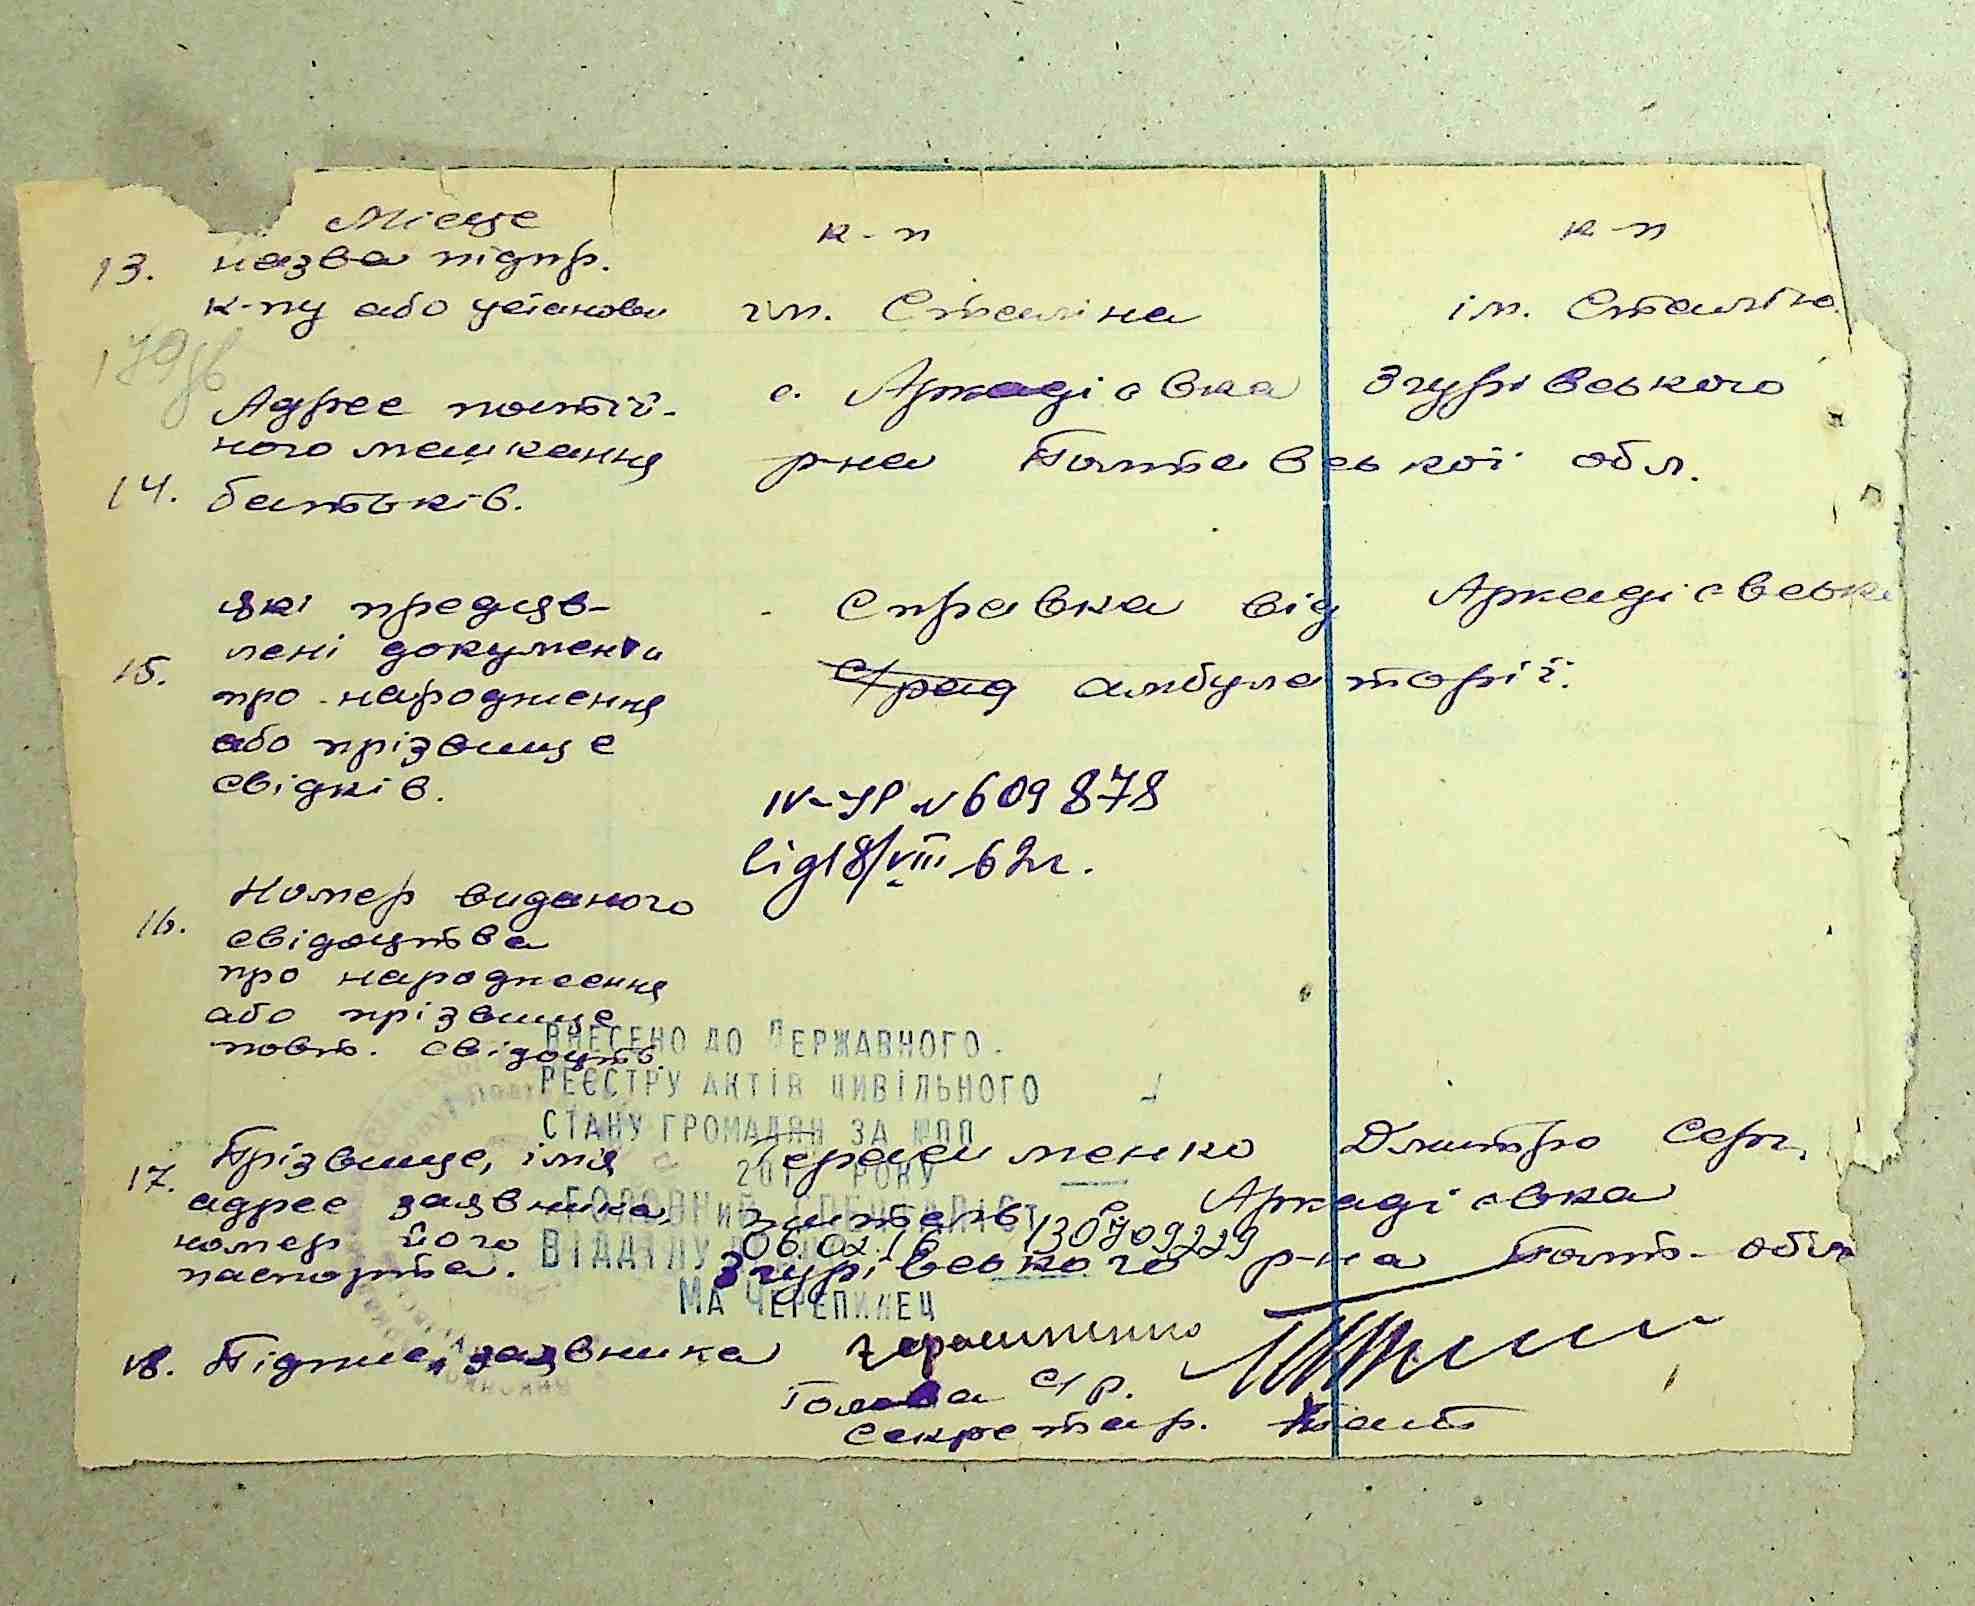 Місце
13. назва підпр. к-п к-п
к-пу або установи ім. Сталіна ім. Сталіна
Адрес постій- с. Аркадієвка Згурівського
ного мешкання р-на Полтавської обл.
14. батьків.
які предияв- Справка від Аркадієвськ
15. лені документи
про народження с/рад амбулаторії.
або прізвище
свідків.
IV-УР № 609878
від 18/VIII 62 г.
Номер виданого
16. свідоцтва
про народження
або прізвище
повт. свідоцтв.
ВНЕСЕНО ДО ДЕРЖАВНОГО
РЕЄСТРУ АКТІВ ЦИВІЛЬНОГО
СТАНУ ГРОМАДЯН ЗА №ПП
201 РОКУ
ГОЛОВНИЙ СПЕЦІАЛІСТ
ВІДДІЛУ
МА ЧЕРЕПИНЕЦ
06.02.16 130709229
17. Прізвище, імя Герасименко Дмитро Серг.
адрес заявника, житель с Аркадієвка
номер його Згурівського р-на Полт. обл
паспорта.
18. Підпис заявника Герасименко
Голова с/р.
Секретар.